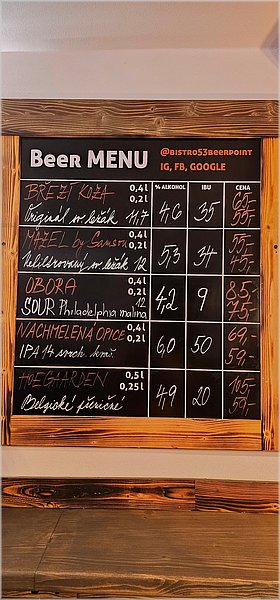 Beer MENU @BISTRO53BEERPOINT
IG, FB, GOOGLE
% ALKOHOL IBU CENA
BŘEZÍ KOZA 0,4 l 65,-
Originál sv. ležák 11,7 0,2 l 4,6 35 55,-
MAZEL by Samson 0,4 l 55,-
Nefiltrovaný sv. ležák 12 0,2 l 5,3 34 45,-
OBORA 0,4 l 85,-
SOUR Philadelphia malina 12 0,2 l 4,2 9 75,-
NACHMELENÁ OPICE 0,4 l 69,-
IPA 14 0,2 l 6,0 50 59,-
HOEGAARDEN 0,5 l 105,-
Belgické pšeničné 0,25 l 4,9 20 59,-